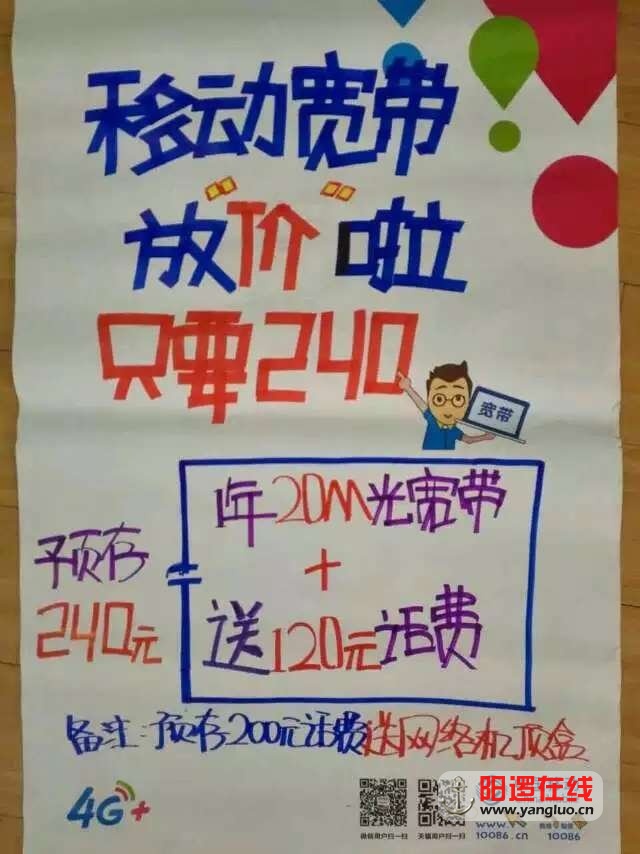 移动宽带
放“价”啦
只要240
宽带
1年20M光宽带
+
送120元话费
预存
240元
=
备注:预存200元话费送网络机顶盒
4G+
微信用户扫一扫
天猫用户扫一扫
www.
10086.cn
10086
阳逻在线
www.yangluo.cn